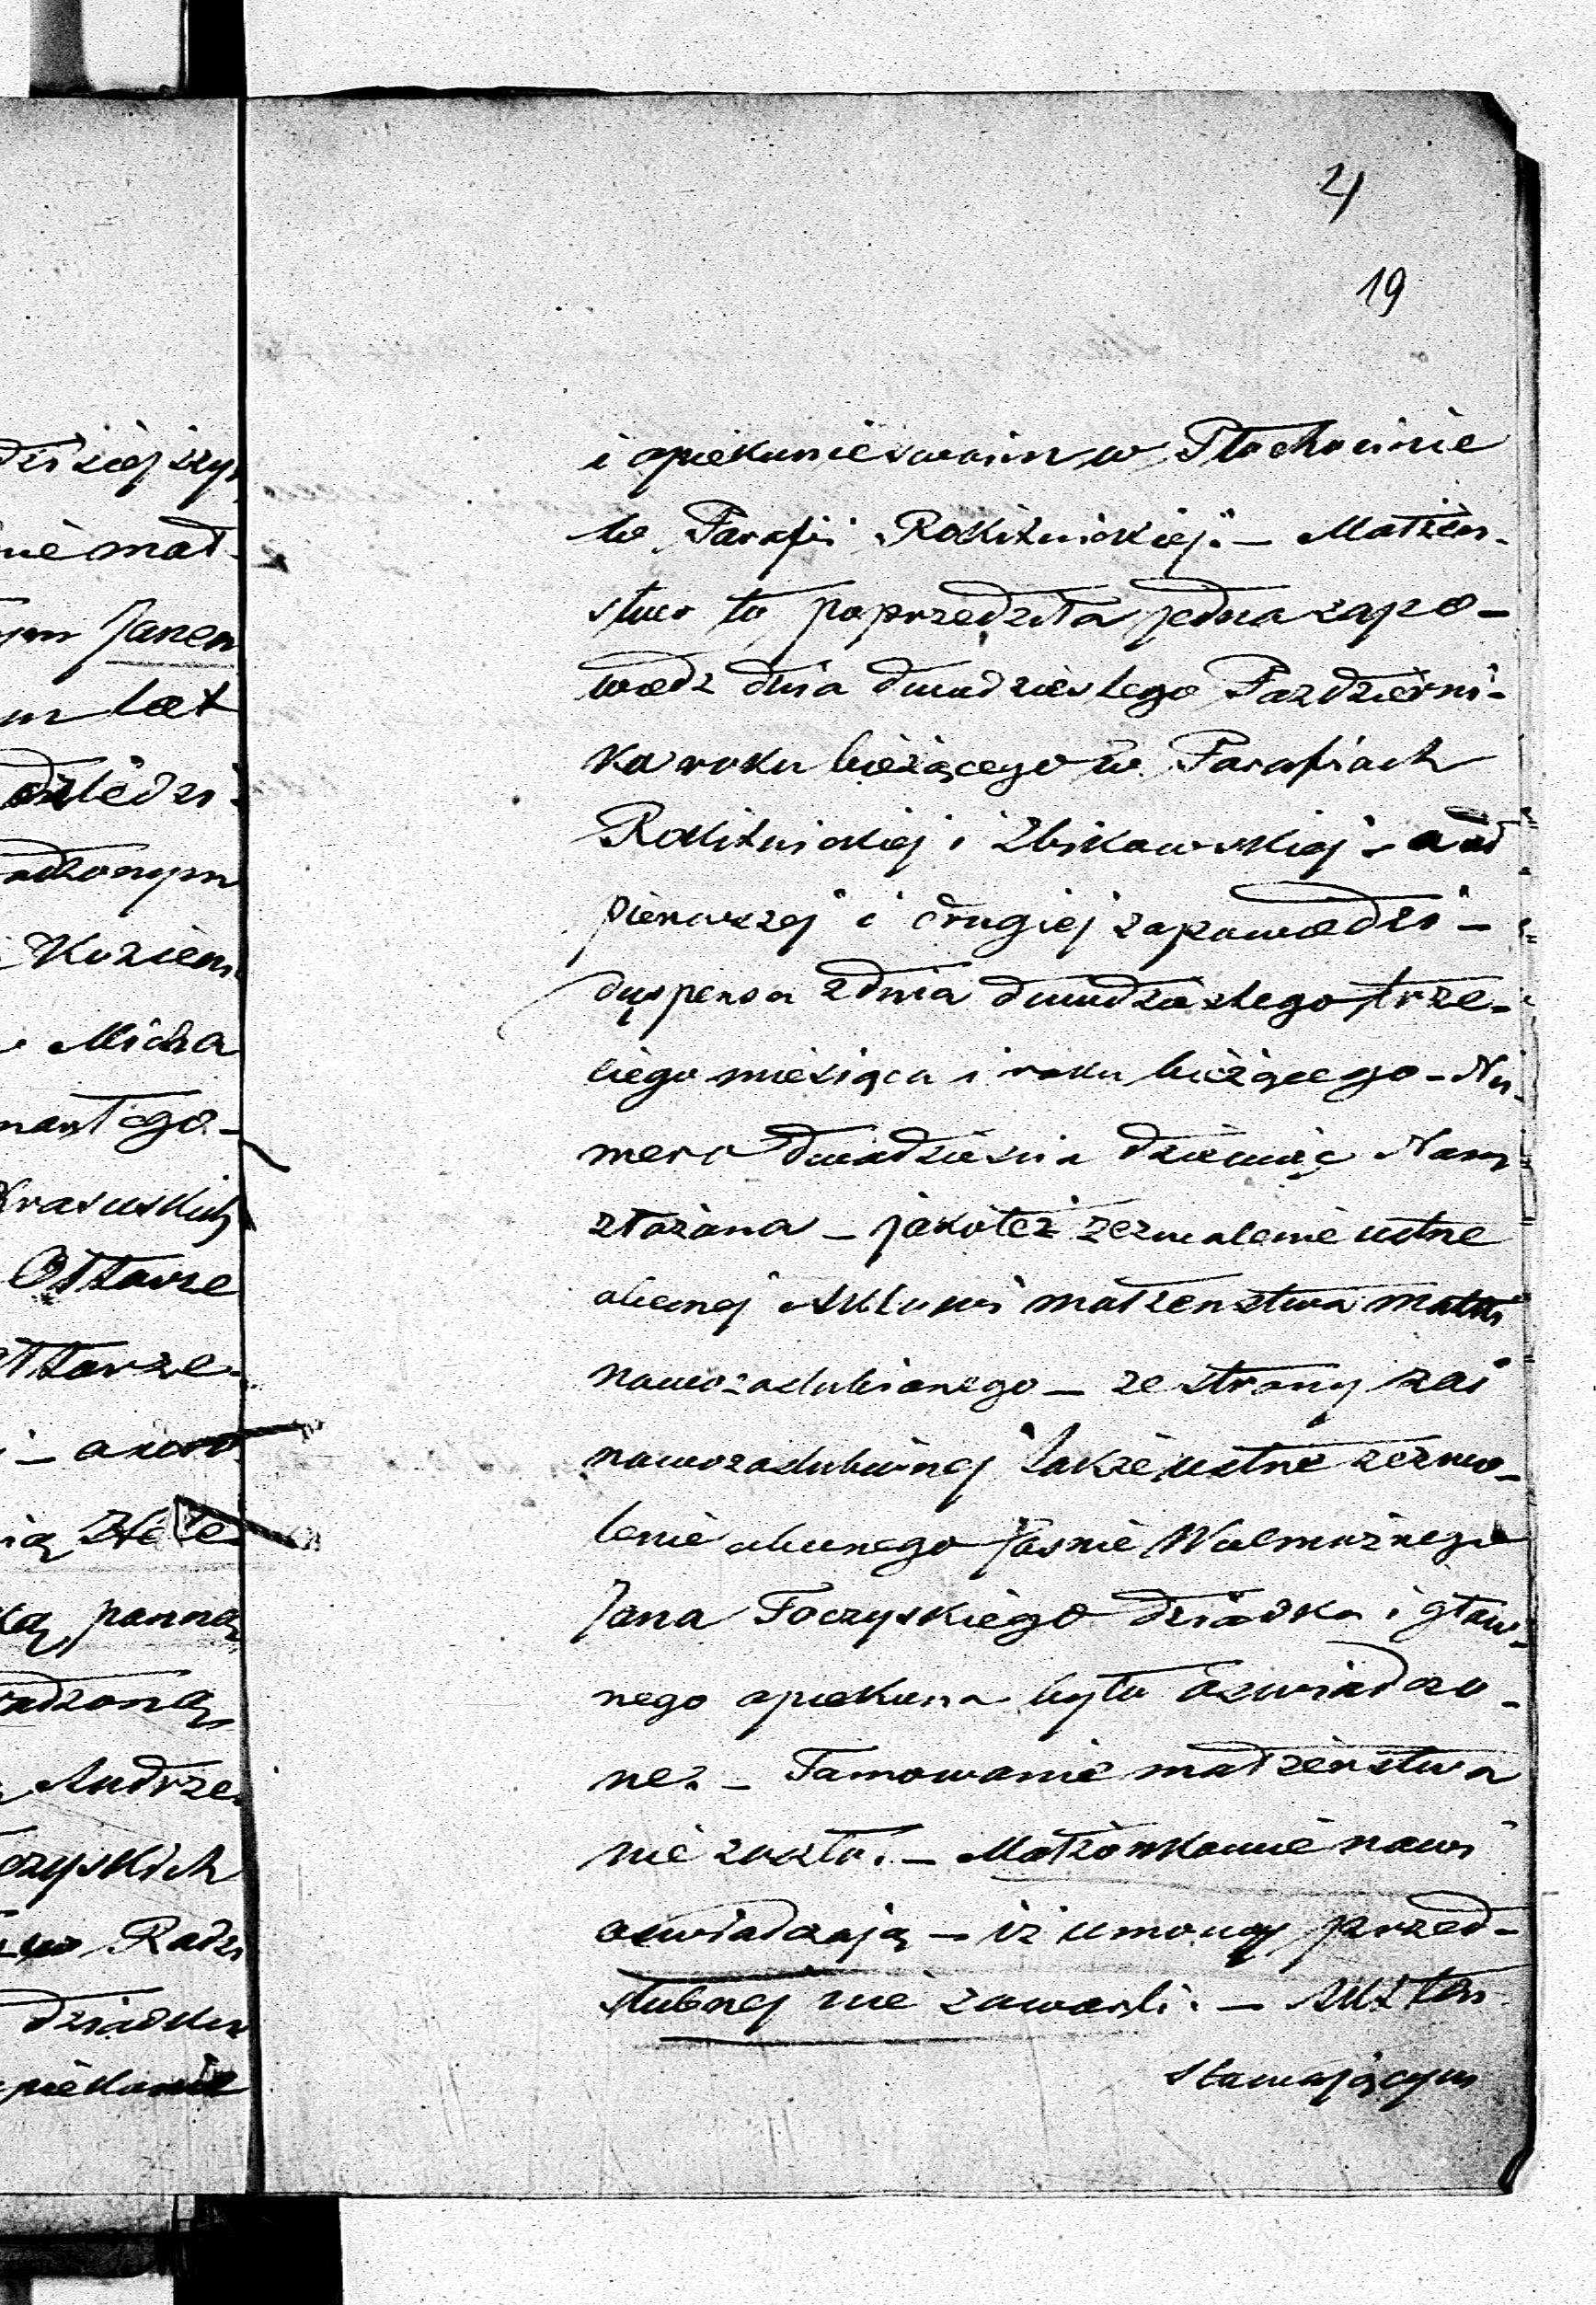 21
19
i opiekunie swoim w Płochocinie
w Parafii Rokitnickiej. – Małżeń-
stwo to poprzedziła jedna zapo-
wiedz dnia dwudziestego Pazdzierni-
ka roku bieżącego w Parafiach
Rokitnickiej i Zbikowskiej – a od
pierwszej i drugiej zapowiedzi –
dyspensa z dnia dwudziestego trze-
ciego miesiąca i roku bieżącego – Nu-
mero dwadzieścia dziewięć Nam
złożona – jakoteż zezwolenie ustne
obecnej Aktowi małżeństwa matki
nowozaslubionego – ze strony zaś
nowozaslubionej także ustne zezwo-
lenie obecnego Jasnie Wielmożnego
Jana Toczyskiego dziadka i głów-
nego opiekuna było oświadczo-
ne. – Tamowanie małżeństwa
nie zaszło. – Małżonkowie nowi
oswiadczają – iż umowy przed-
slubnej nie zawarli. – Akt ten
stawającym
dzisiejszym
nie mał-
Janem
lat
dziedzi-
Kozien
Micha
Krasuskich
Ołtarze
panną
Andrze-
czyskich
Radzi
dziadku
opiekunie